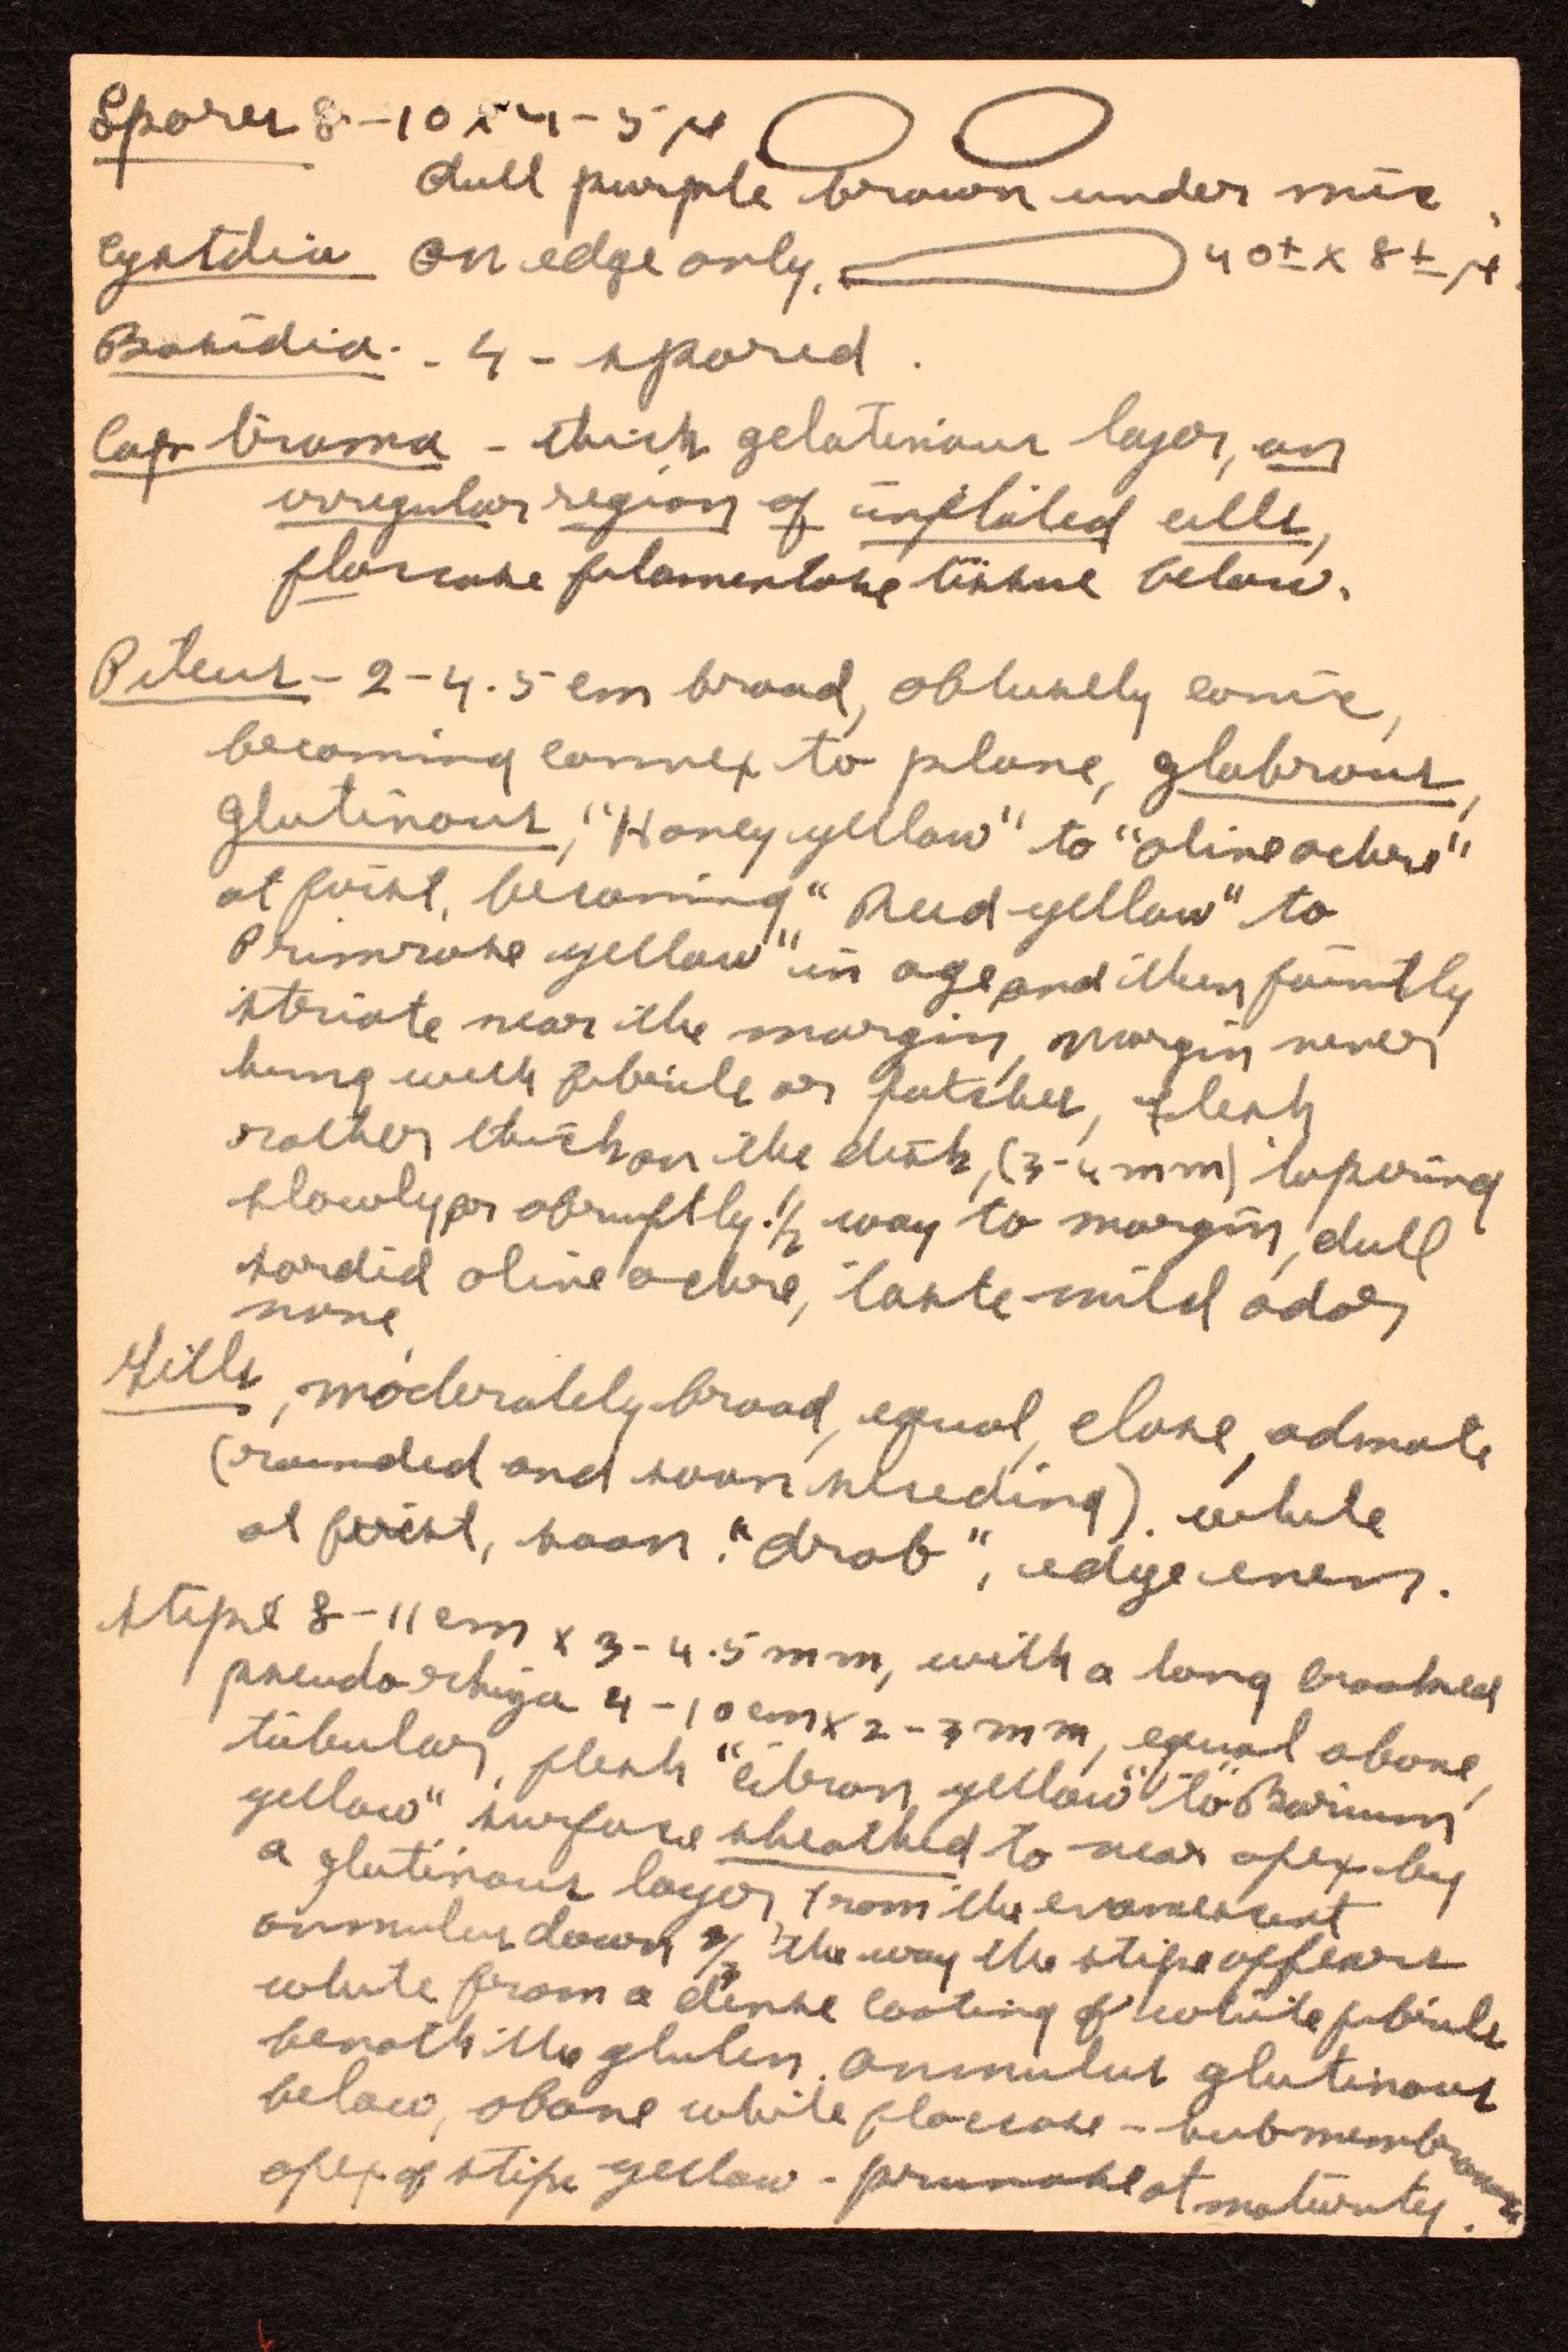 Spores 8-10 x 4-5 µ
dull purple brown under mic.
Cystdia on edge only. 40± x 8± µ.
Basidia - 4-spored.
Cap trama - thick gelatinous layer, an
irregular region of inflated cells,
floccose filamentose tissue below.
Pileus - 2-4.5 cm broad, obtusely conic,
becoming convex to plane, glabrous,
glutinous, "Honey yellow" to "olive ochre"
at first, becoming "Reed-yellow" to
Primrose yellow" in age and then faintly
striate near the margin, margin never
hung with fibrils or patches, flesh
rather thick on the disk, (3-4 mm) tapering
slowly or abruptly ½ way to margin, dull
sordid olive ochre, taste mild odor
none.
Gills, moderately broad, equal, close, adnate
(rounded and soon seceding). white
at first, soon "drab", edge even.
Stipe 8-11 cm x 3-4.5 mm, with a long crooked
pseudorhiza 4-10 cm x 2-3 mm, equal above,
tubular, flesh "citron yellow" to "Barium
yellow" surface sheathed to near apex by
a glutinous layer, from the evanescent
annulus down 2/3 the way the stipe appears
white from a dense coating of white fibrils
beneath the gluten. annulus glutinous
below, above white floccose - submembranous
apex of stipe yellow - pruinose at maturity.